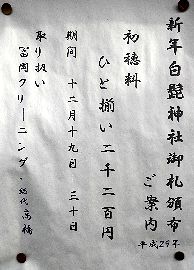 新年白髭神社御札頒布
ご案内
平成29年
初穂料
ひと揃い二千二百円
期間 十二月十九日 三十日
取り扱い
富岡クリーニング・総代高橋